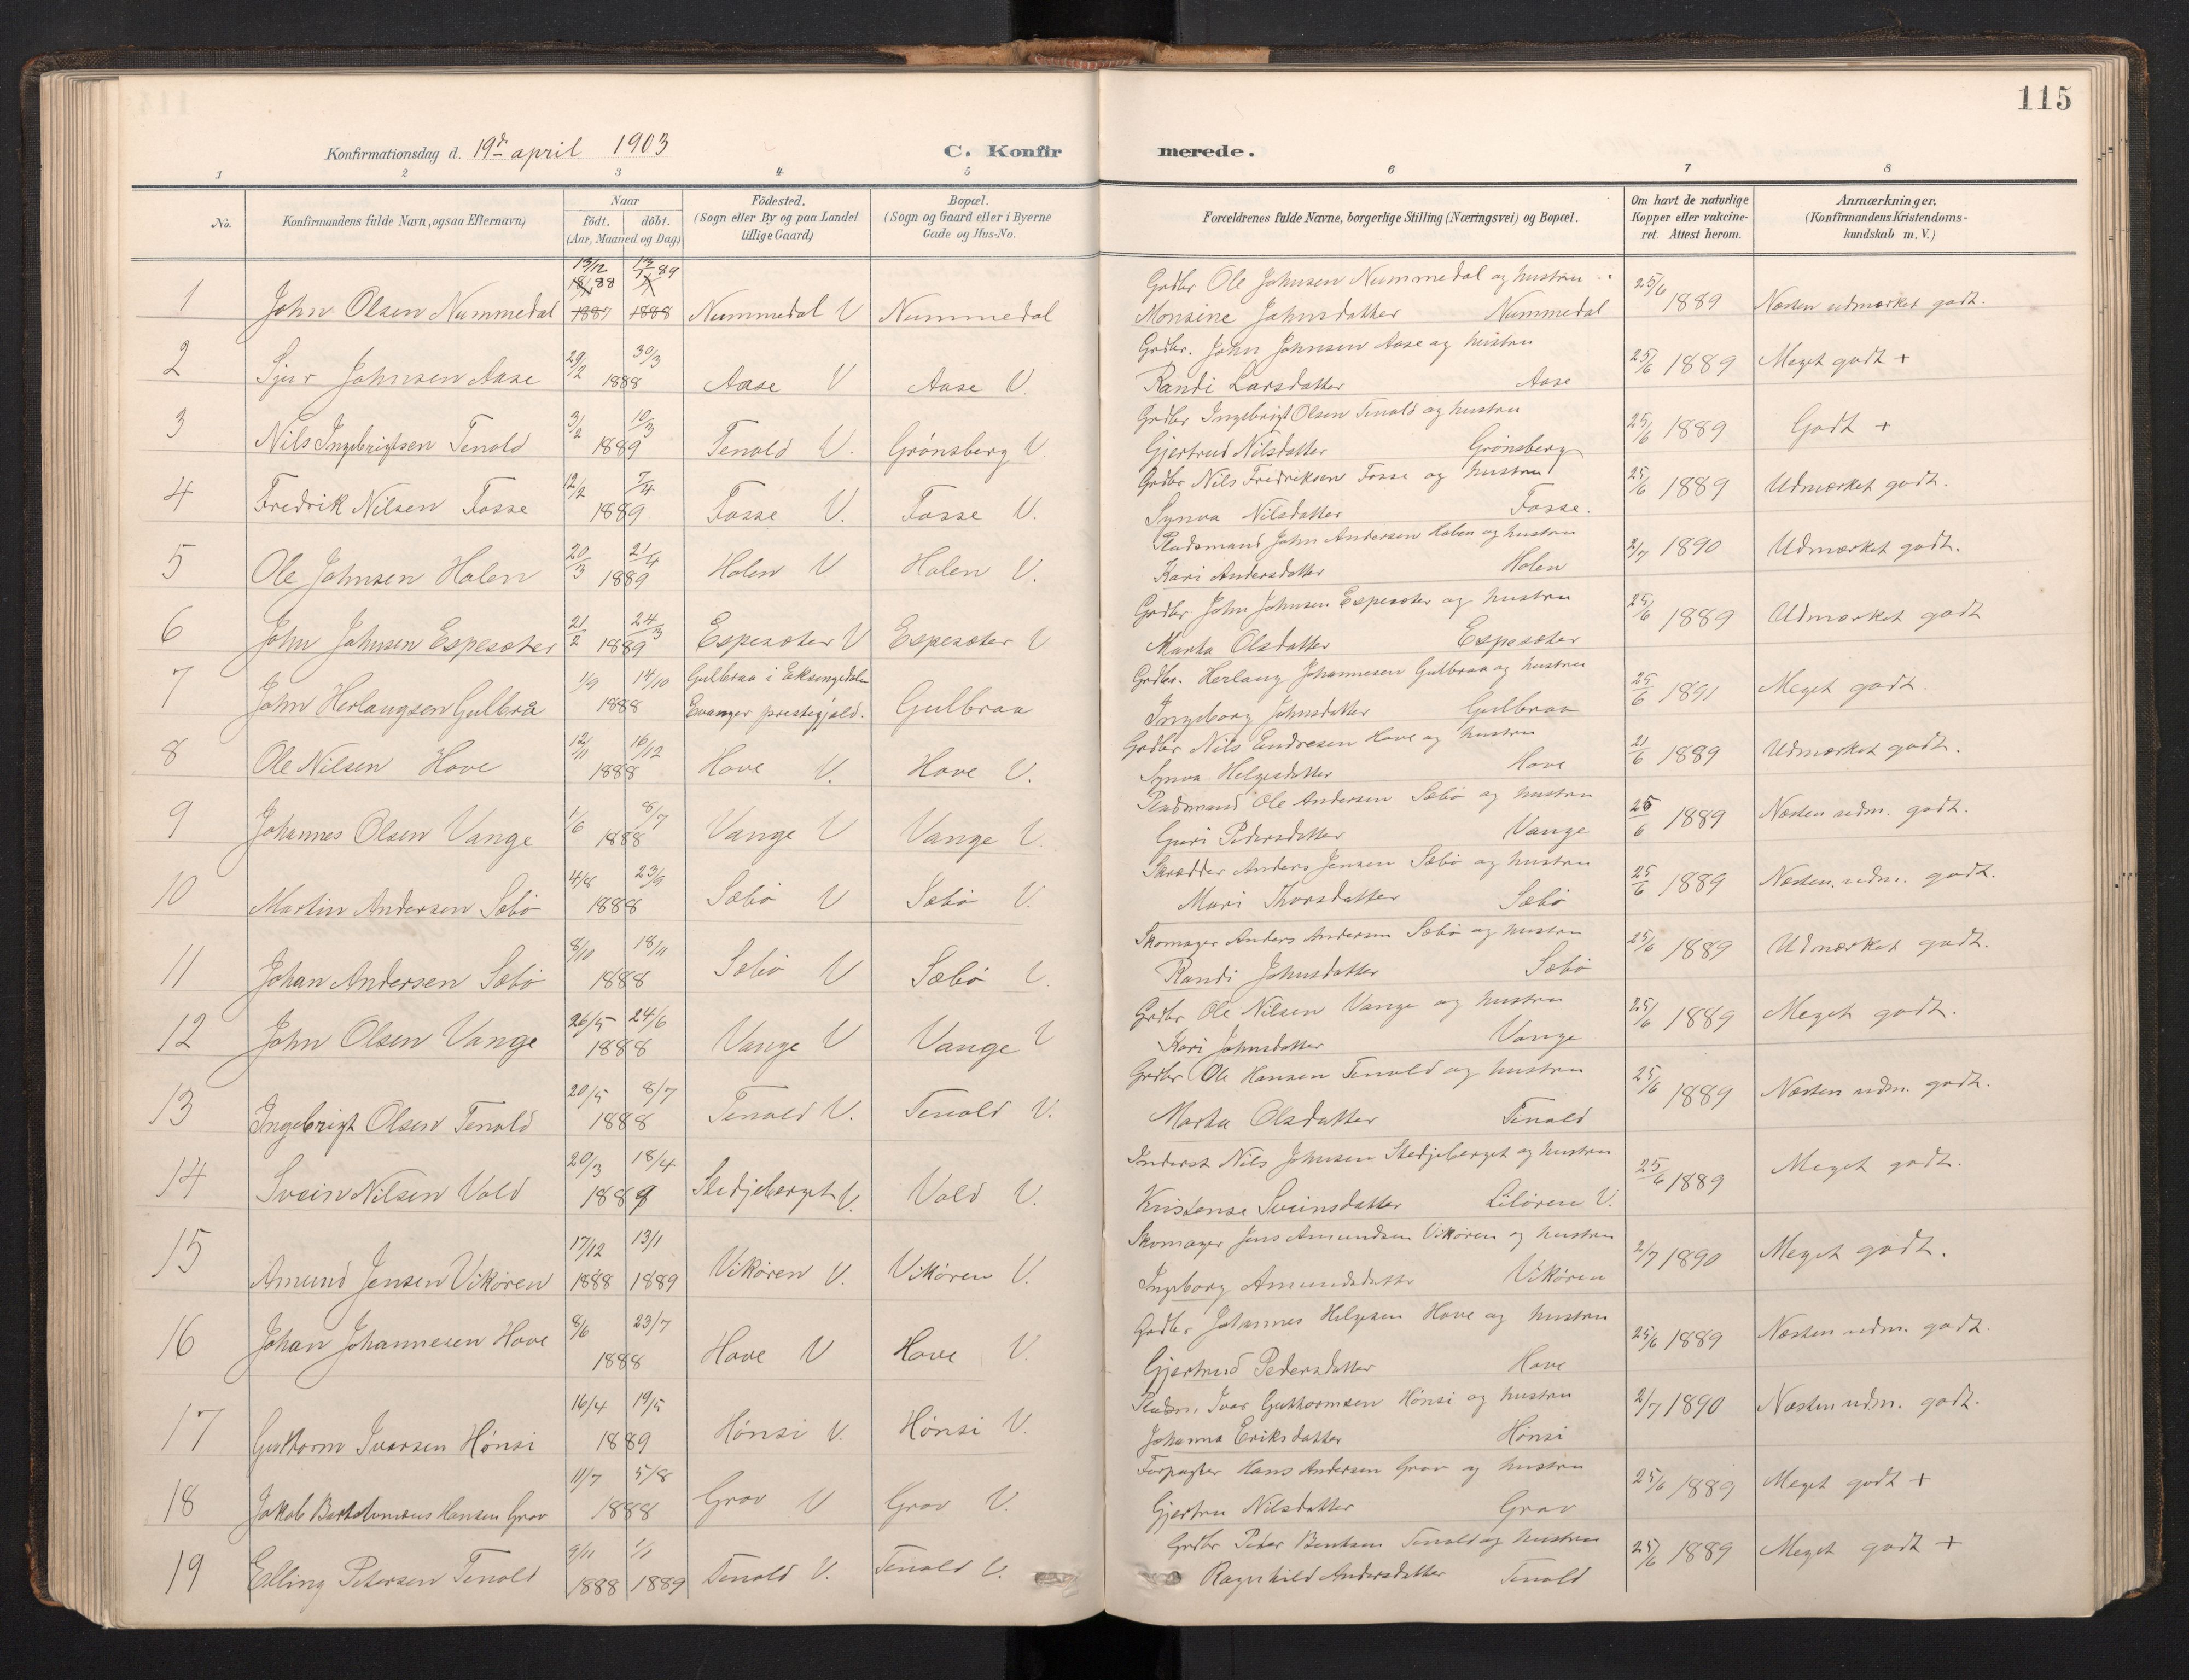 115
Konfirmationsdag d. 19de april 1903 C. Konfirmerede.
1 2 3 4 5 6 7 8
No. Konfirmandens fulde Navn, ogsaa Efternavn) Naar födt. döbt. (Aar, Maaned og Dag) Födested. (Sogn eller By og paa Landet tillige Gaard) Bopæl. (Sogn og Gaard eller i Byerne Gade og Hus-No. Forældrenes fulde Navne, borgerlige Stilling (Næringsvei) og Bopæl. Om havt de naturlige Kopper eller vakcineret. Attest herom. Anmærkninger. (Konfirmandens Kristendomskundskab m. V.)
13/12 88 13/1 89
18/1
1 John Olsen Nummedal 1887 1888 Nummedal V Nummedal Grdbr Ole Johnsen Nummedal og hustru Monsine Johnsdatter Nummedal 25/6 1889 Næsten udmærket godt.
2 Sjur Johnsen Aase 29/2 30/3 1888 Aase V Aase V. Grdbr. John Johnsen Aase og hustru Randi Larsdatter Aase 25/6 1889 Meget godt +
3 Nils Ingebrigtsen Tenold 3/2 10/3 1889 Tenold V. Grönsberg V. Grdbr Ingebrigt Olsen Tenold og hustru Gjertrud Nilsdatter Grönsberg 25/6 1889 Godt +
4 Fredrik Nilsen Fosse 12/2 7/4 1889 Fosse V. Fosse V. Grdbr Nils Fredriksen Fosse og hustru Synva Nilsdatter Fosse. 25/6 1889 Udmærket godt.
5 Ole Johnsen Holen 20/3 21/4 1889 Holen V Holen V. Pladsmand John Andersen Holen og hustru Kari Andersdatter Holen 2/7 1890 Udmærket godt.
6 John Johnsen Espesæter 21/2 24/3 1889 Espesæter V Espesæter V Grdbr. John Johnsen Espesæter og hustru Marta Olsdatter Espesæter 25/6 1889 Udmærket godt
7 John Herlaugsen Gulbraa 1/9 14/10 1888 Gulbraa i Eksingedalen Evanger prestegjeld. Gulbraa Grdbr. Herlaug Johannesen Gulbraa og hustru Ingeborg Johnsdatter Gulbraa 25/6 1891 Meget godt.
8 Ole Nilsen Hove 12/11 16/12 1888 Hove V. Hove V. Grdbr Nils Endresen Hove og hustru Synva Helgesdatter Hove 21/6 1889 Udmærket godt.
9 Johannes Olsen Vange 1/6 8/7 1888 Vange V Vange V. Pladsmand Ole Andersen Sæbö og hustru Guri Pedersdatter Vange 25/6 1889 Næsten udm. godt.
10 Martin Andersen Sæbö 4/8 23/9 1888 Sæbö V Sæbö V. Skrædder Anders Jensen Sæbö og hustru Mari Thorsdatter Sæbö 25/6 1889 Næsten. udm. godt.
11 Johan Andersen Sæbö 8/10 18/11 1888 Sæbö V Sæbö V Skomager Anders Andersen Sæbö og hustru Randi Johnsdatter Sæbö 25/6 1889 Udmærket godt.
12 John Olsen Vange 26/5 24/6 1888 Vange V Vange V Grdbr Ole Nilsen Vange og hustru Kari Johnsdatter Vange 25/6 1889 Meget godt.
13 Ingebrigt Olsen Tenold 20/5 8/7 1888 Tenold V. Tenold V. Grdbr Ole Hansen Tenold og hustru Marta Olsdatter Tenold 25/6 1889 Næsten udm. godt.
14 Svein Nilsen Vold 20/3 18/4 1889 Stedjeberget V. Vold V. Inderst Nils Johnsen Stedjeberget og hustru Kristense Sveinsdatter Lilören V. 25/6 1889 Meget godt.
15 Amund Jensen Vikören 17/12 1888 13/1 1889 Vikören V. Vikören V. Skomager Jens Amundsen Vikören og hustru Ingeborg Amundsdatter Vikören 2/7 1890 Meget godt.
16 Johan Johannesen Hove 8/6 23/7 1888 Hove V Hove V. Grdbr Johannes Helgesen Hove og hustru Gjertrud Pedersdatter Hove 25/6 1889 Næsten udm. godt.
17 Guttorm Ivarsen Hönsi 16/4 19/5 1889 Hönsi V. Hönsi V. Pladsm. Ivar Guttormsen Hönsi og hustru Johanna Eriksdatter Hönsi 2/7 1890 Næsten udm. godt.
18 Jakob Bartolomæus Hansen Grov 11/7 5/8 1888 Grov V Grov V. Forpagter Hans Andersen Grov og hustru Gjertru Nilsdatter Grov 25/6 1889 Meget godt +
19 Elling Petersen Tenold 9/11 1888 1/1 1889 Tenold V. Tenold V. Grdbr Peter Bentsen Tenold og hustru Ragnhild Andersdatter Tenold 25/6 1889 Meget godt +